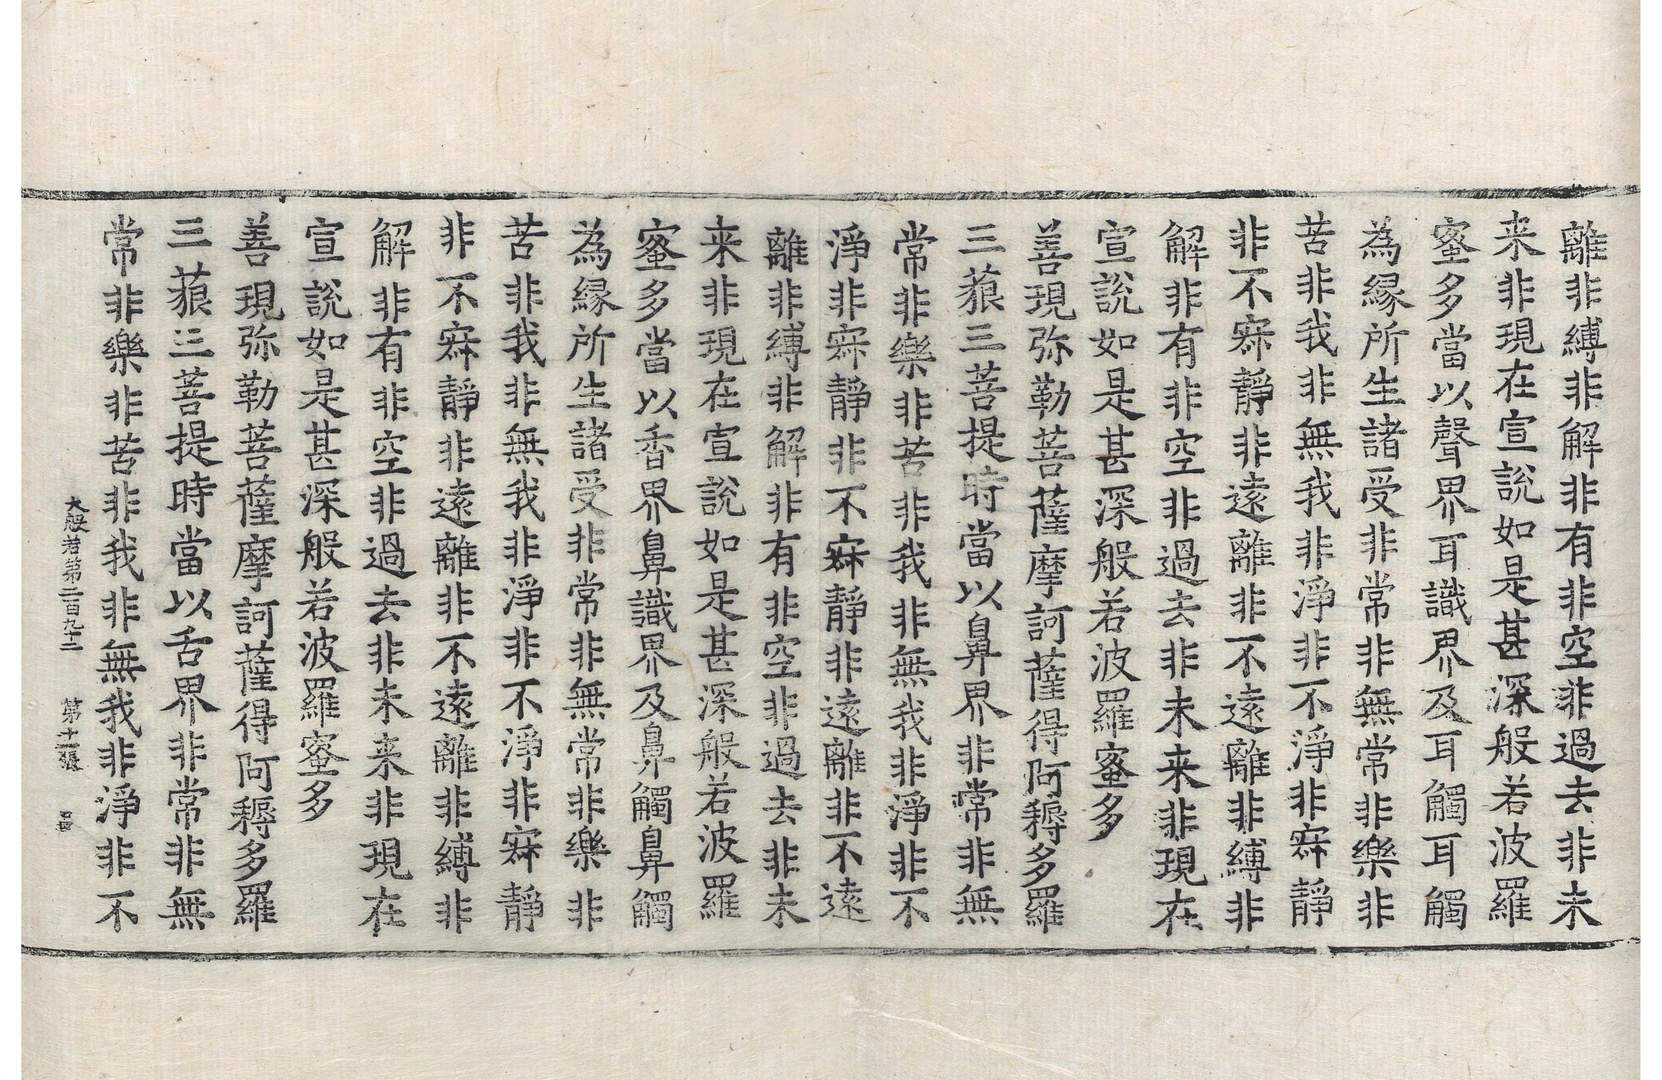 離非縛非解非有非空非過去非未
来非現在宣說如是甚深般若波羅
蜜多當以聲界耳識界及耳觸耳觸
為緣所生諸受非常非無常非樂非
苦非我非無我非淨非不淨非㝛靜
非不㝛靜非遠離非不遠離非縛非
解非有非空非過去非未来非現在
宣說如是甚深般若波羅蜜多
善現弥勒菩薩摩訶薩得阿耨多羅
三藐三菩提時當以鼻界非常非無
常非樂非苦非我非無我非淨非不
淨非㝛靜非不㝛靜非遠離非不遠
離非縛非解非有非空非過去非未
来非現在宣說如是甚深般若波羅
蜜多當以香界鼻識界及鼻觸鼻觸
為緣所生諸受非常非無常非樂非
苦非我非無我非淨非不淨非㝛靜
非不㝛靜非遠離非不遠離非縛非
解非有非空非過去非未来非現在
宣說如是甚深般若波羅蜜多
善現弥勒菩薩摩訶薩得阿耨多羅
三藐三菩提時當以舌界非常非無
常非樂非苦非我非無我非淨非不
大般若第二百九十二 第十一張